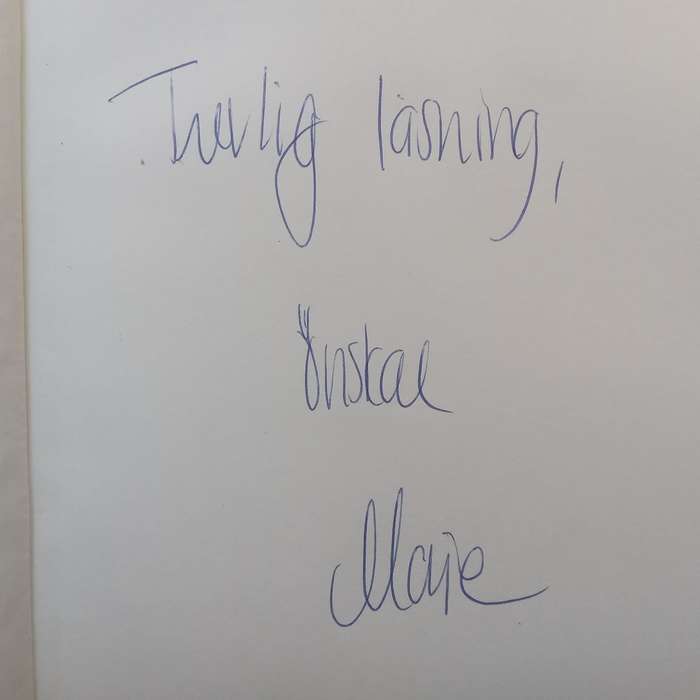 Trevlig läsning,
önskar
Maje